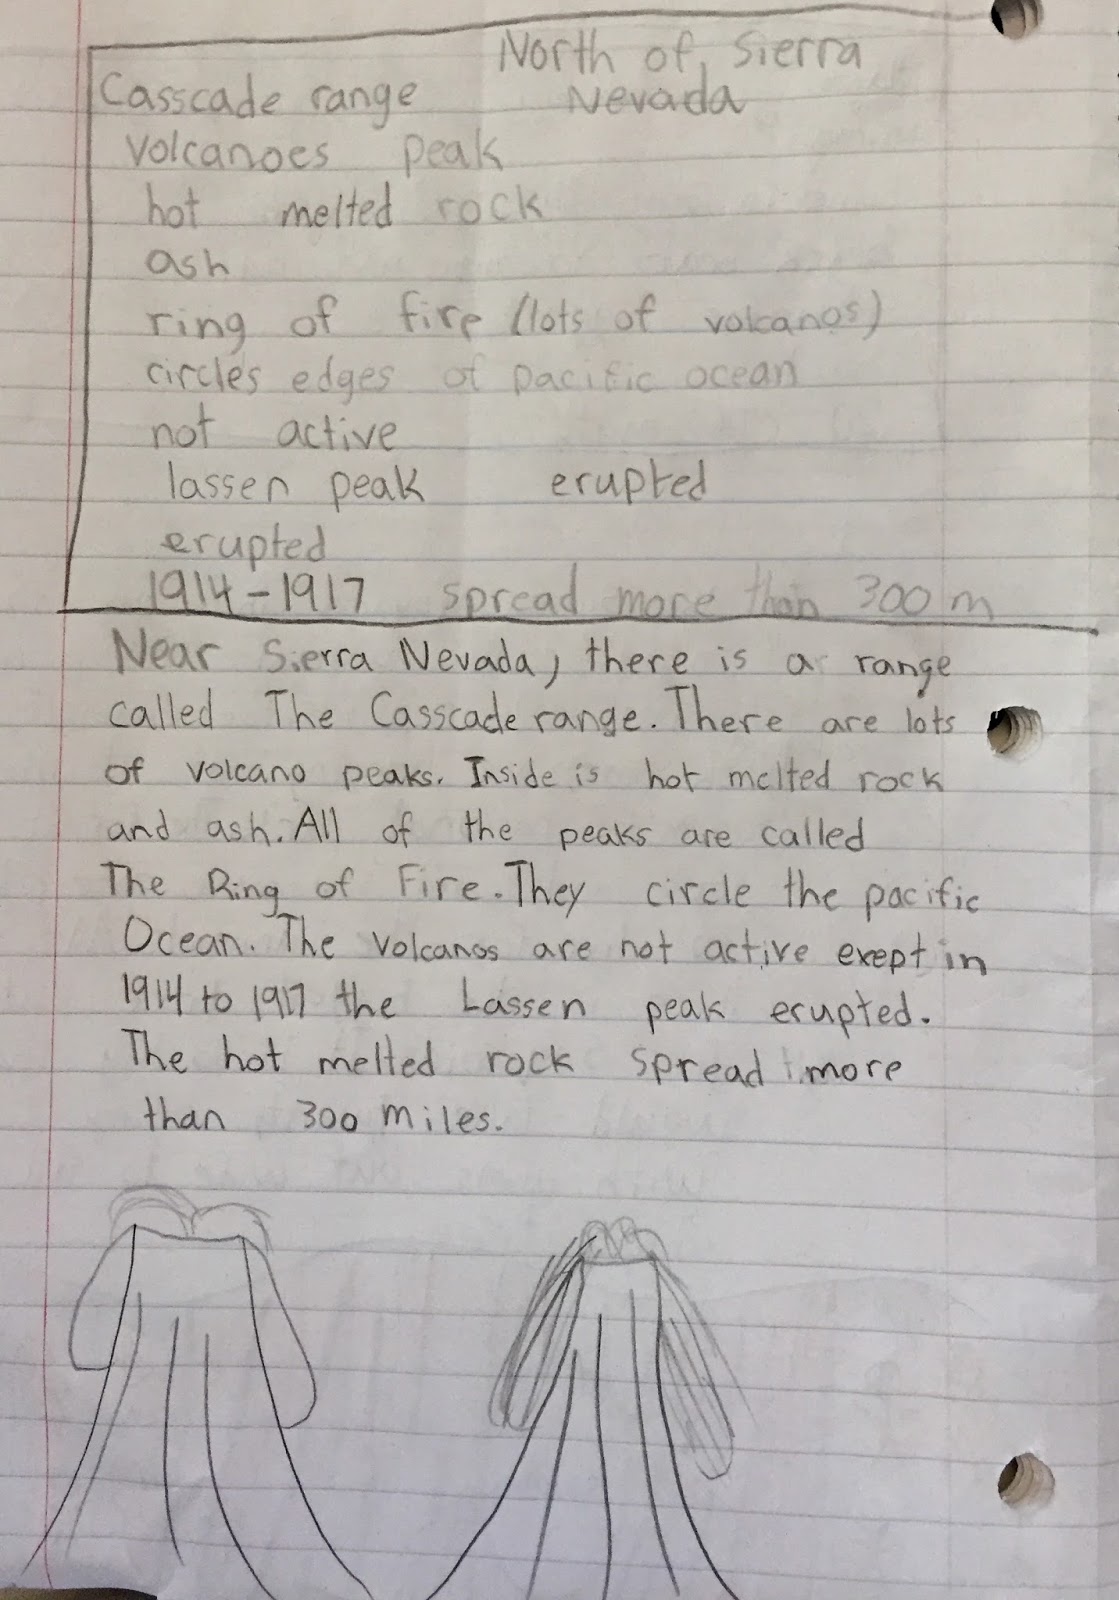 North of Sierra
Casscade range Nevada
volcanoes peak
hot melted rock
ash
ring of fire (lots of volcanos)
circles edges of pacific ocean
not active
lassen peak erupted
erupted
1914-1917 spread more than 300 m
Near Sierra Nevada, there is a range
called The Casscade range. There are lots
of volcano peaks. Inside is hot melted rock
and ash. All of the peaks are called
The Ring of Fire. They circle the pacific
Ocean. The volcanos are not active exept in
1914 to 1917 the Lassen peak erupted.
The hot melted rock spread more
than 300 miles.